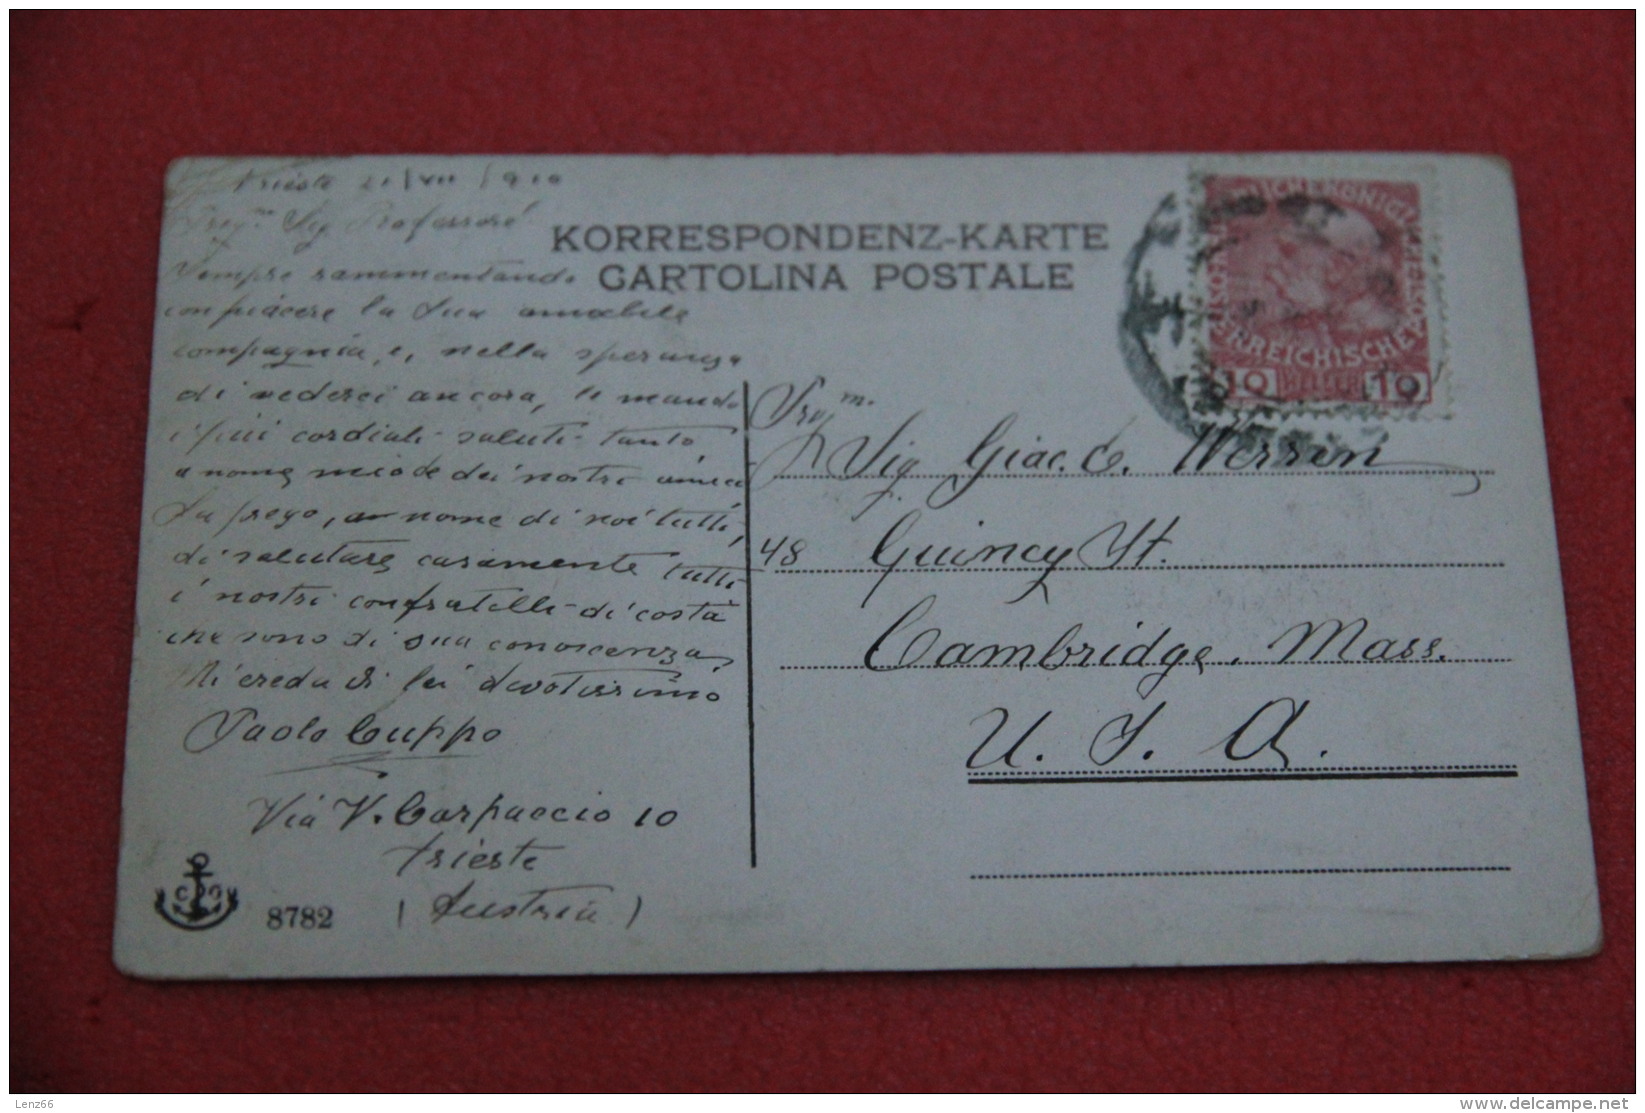 Trieste 21/VII/910
Preg.mo Sig. Professore
Sempre rammentando
con piacere la Sua amabile
compagnia, e, nella speranza
di vederci ancora, le mando
i più cordiali saluti tanto
a nome mio che dei nostri amici
La prego, a nome di noi tutti,
di salutare caramente tutti
i nostri confratelli di costà
che sono di sua conoscenza.
Mi creda di Lei devotissimo
Paolo Cuppo
Via V. Carpaccio 10
Trieste
(Austria)
8782
KORRESPONDENZ-KARTE
CARTOLINA POSTALE
10 HELLER 10
Sig. Giac. C.
48 Quincy St.
Cambridge, Mass.
U. S. A.
Lenz66
delcampe.net